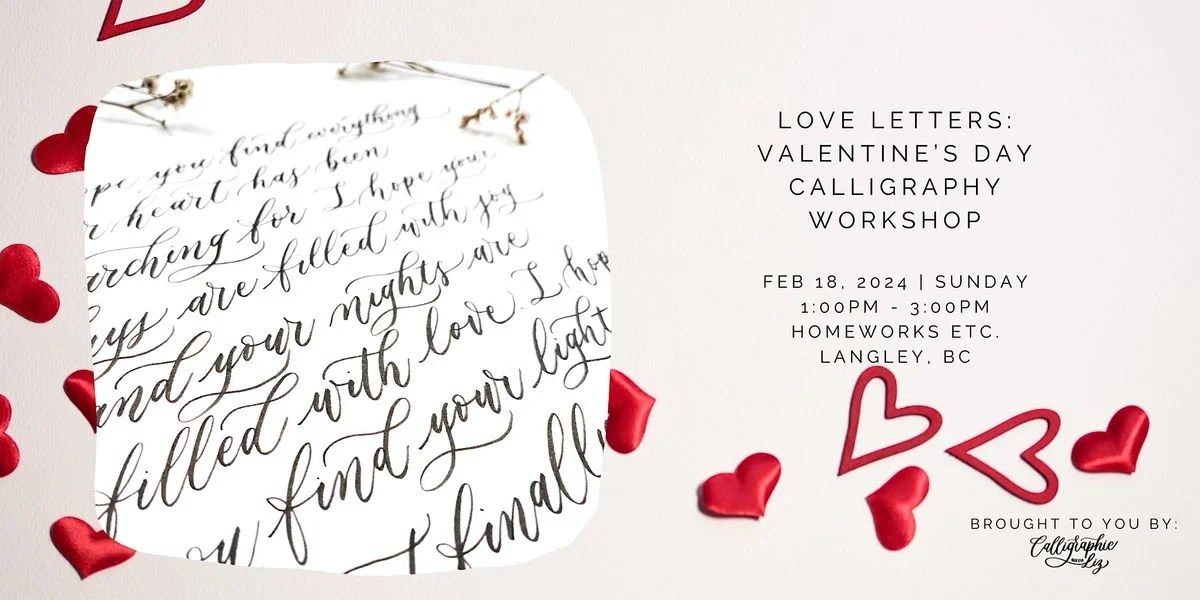 pe you find everything
r heart has been
arching for I hope your
ays are filled with joy
and your nights are
filled with love. I hop
find your light
finall
LOVE LETTERS:
VALENTINE'S DAY
CALLIGRAPHY
WORKSHOP
FEB 18, 2024 | SUNDAY
1:00PM - 3:00PM
HOMEWORKS ETC.
LANGLEY, BC
BROUGHT TO YOU BY:
Calligraphie
Liz